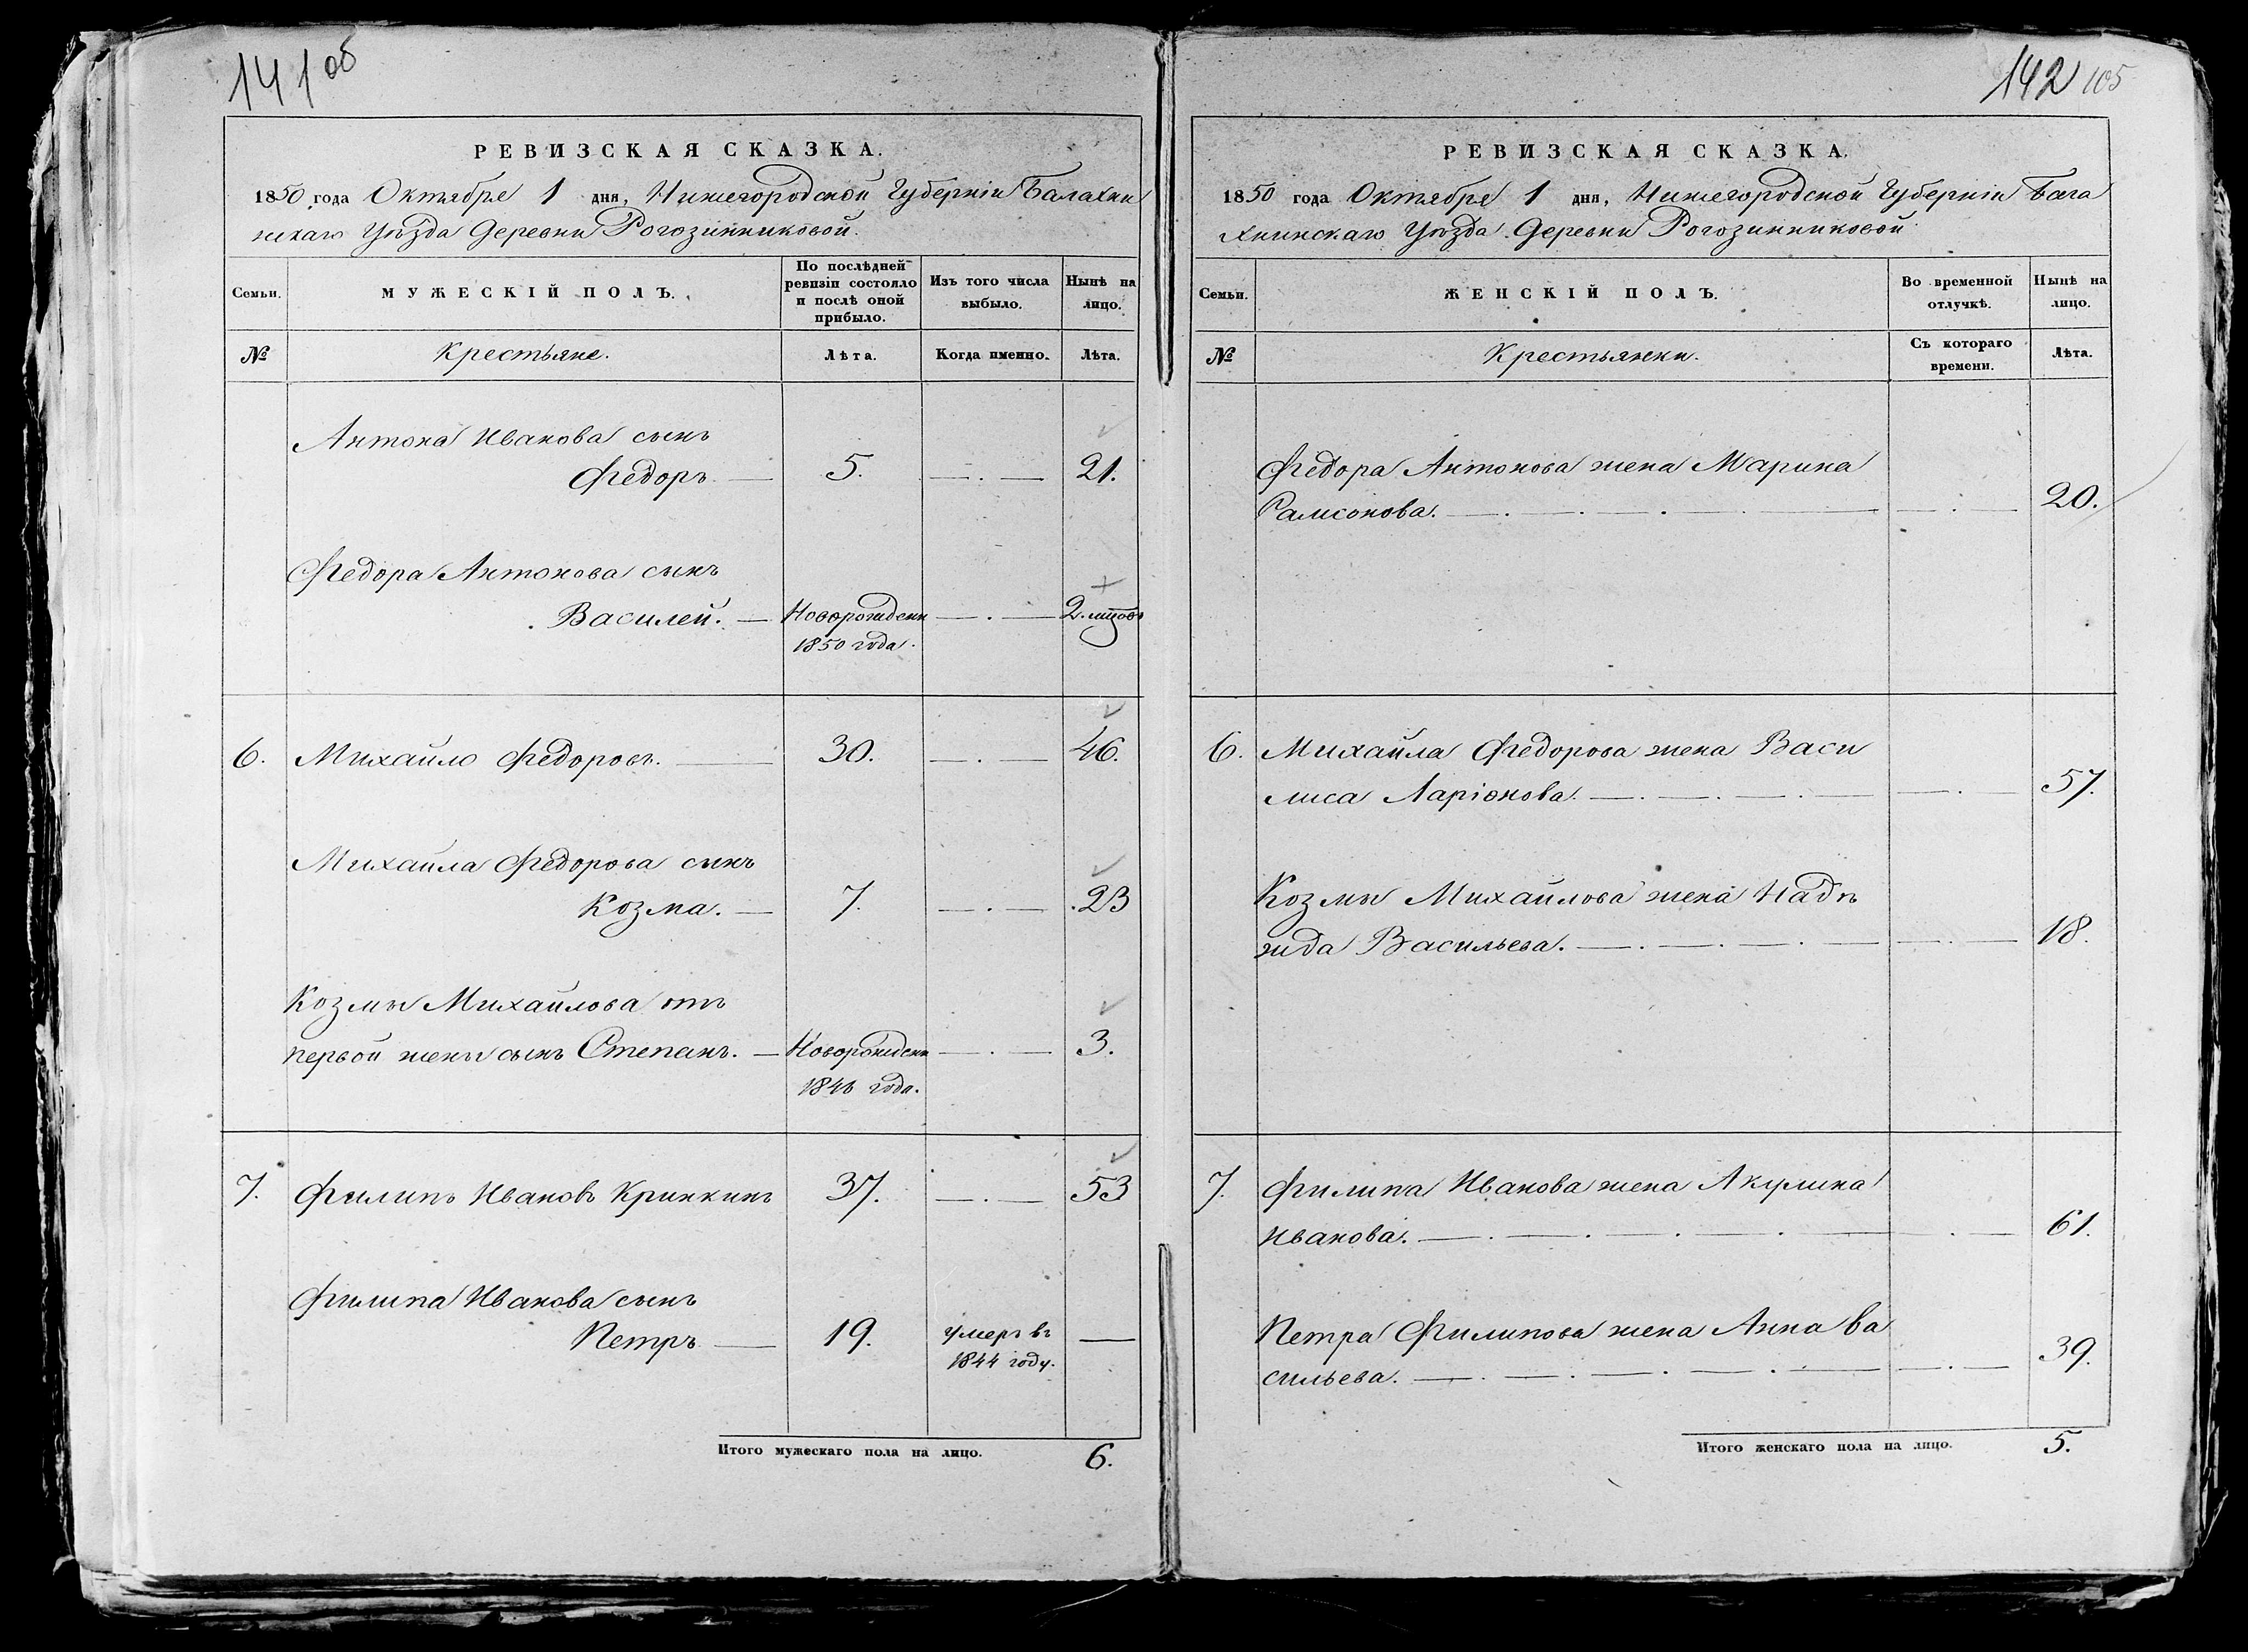 141 об
РЕВИЗСКАЯ СКАЗКА.
1850 года Октября 1 дня, Нижегородской Губерніи Балахни
нскаго Уѣзда Деревни Рогозинниковой.
Семьи.
МУЖЕСКІЙ ПОЛЪ.
По послѣдней ревизіи состояло и послѣ оной прибыло.
Изъ того числа выбыло.
Нынѣ на лицо.
№
Крестьяне.
Лѣта.
Когда именно.
Лѣта.
Антона Иванова сынъ
Федоръ. 5. 21.
Федора Антонова сынъ
Василей. Новорожденн 2. мцовъ
1850 года.
6. Михайло Федоровъ. 30. 46.
Михайла Федорова сынъ
Козма. 7. 23
Козмы Михайлова отъ
первой жены сынъ Степанъ. Новорожденн 3.
1846 года.
7. Филипъ Ивановъ Кринкинъ 37. 53
Филипа Иванова сынъ
Петръ 19. умеръ въ —
1844 году.
Итого мужескаго пола на лицо. 6.
142 105
РЕВИЗСКАЯ СКАЗКА.
1850 года Октября 1 дня, Нижегородской Губерніи Бала
хнинскаго Уѣзда Деревни Рогозинниковой
Семьи.
ЖЕНСКІЙ ПОЛЪ.
Во временной отлучкѣ.
Нынѣ на лицо.
№
Крестьянки.
Съ котораго времени.
Лѣта.
Федора Антонова жена Марина
Самсонова. 20.
6. Михайла Федорова жена Васи
лиса Ларіонова. 57.
Козмы Михайлова жена Надѣ
жда Васильева. 18.
7. Филипа Иванова жена Акулина
Иванова. 61.
Петра Филипова жена Анна Ва
сильева. 39.
Итого женскаго пола на лицо. 5.